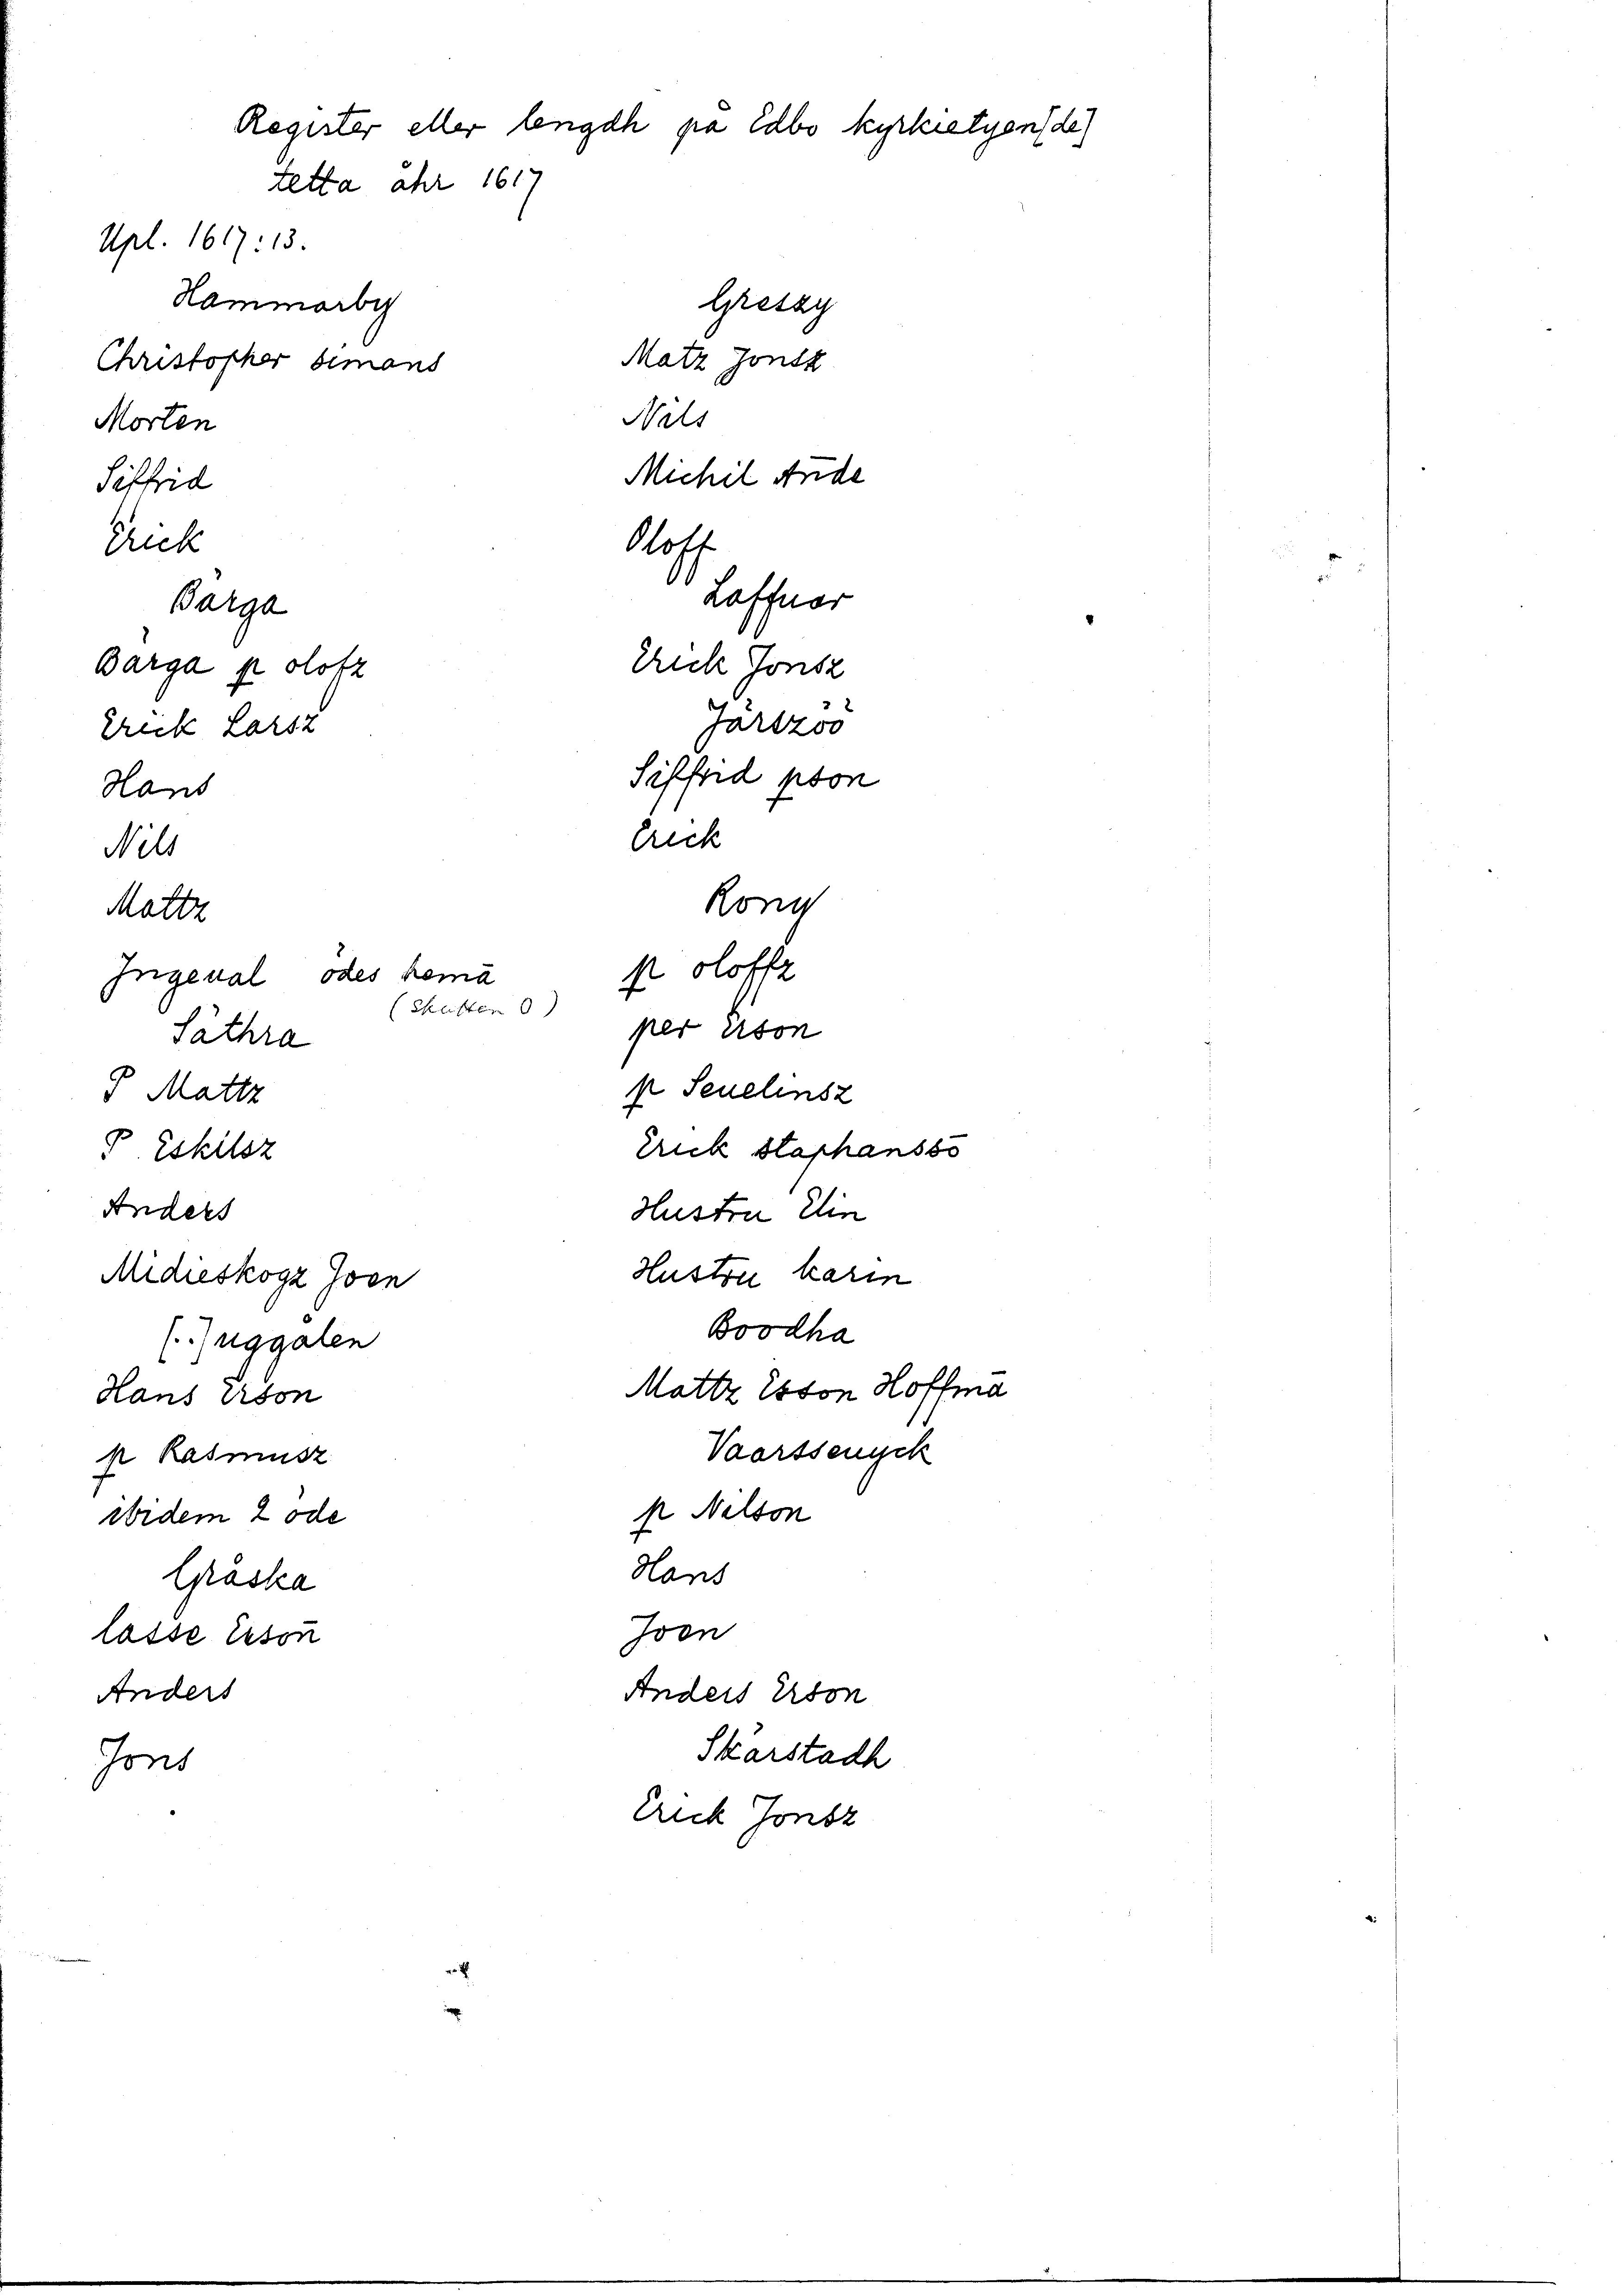 Register eller lengdh på Edbo kyrkietyen[de]
tetta åhr 1617
Upl. 1617:13.
Hammarby
Christopher simans
Morten
Siffrid
Erick
Bärga
Bärga p olofz
Erick Larsz
Hans
Nils
Mattz
Ingeval ödes hemā
(Skatten 0)
Säthra
P Mattz
P Eskilsz
Anders
Midieskogz Joen
[..]uggålen
Hans Erson
p Rasmusz
ibidem 2 öde
Gråska
lasse Ersoñ
Anders
Jons
Greszy
Matz Jonsz
Nils
Michil Ande
Oloff
Laffuar
Erick Jonsz
Järszöö
Siffrid pson
Erick
Rony
p oloffz
per Erson
p Seuelinsz
Erick staphanssō
Hustru Elin
Hustru karin
Boodha
Mattz Esson Hoffmā
Vaarssenyck
p Nilson
Hans
Joen
Anders Erson
Skärstadh
Erick Jonsz